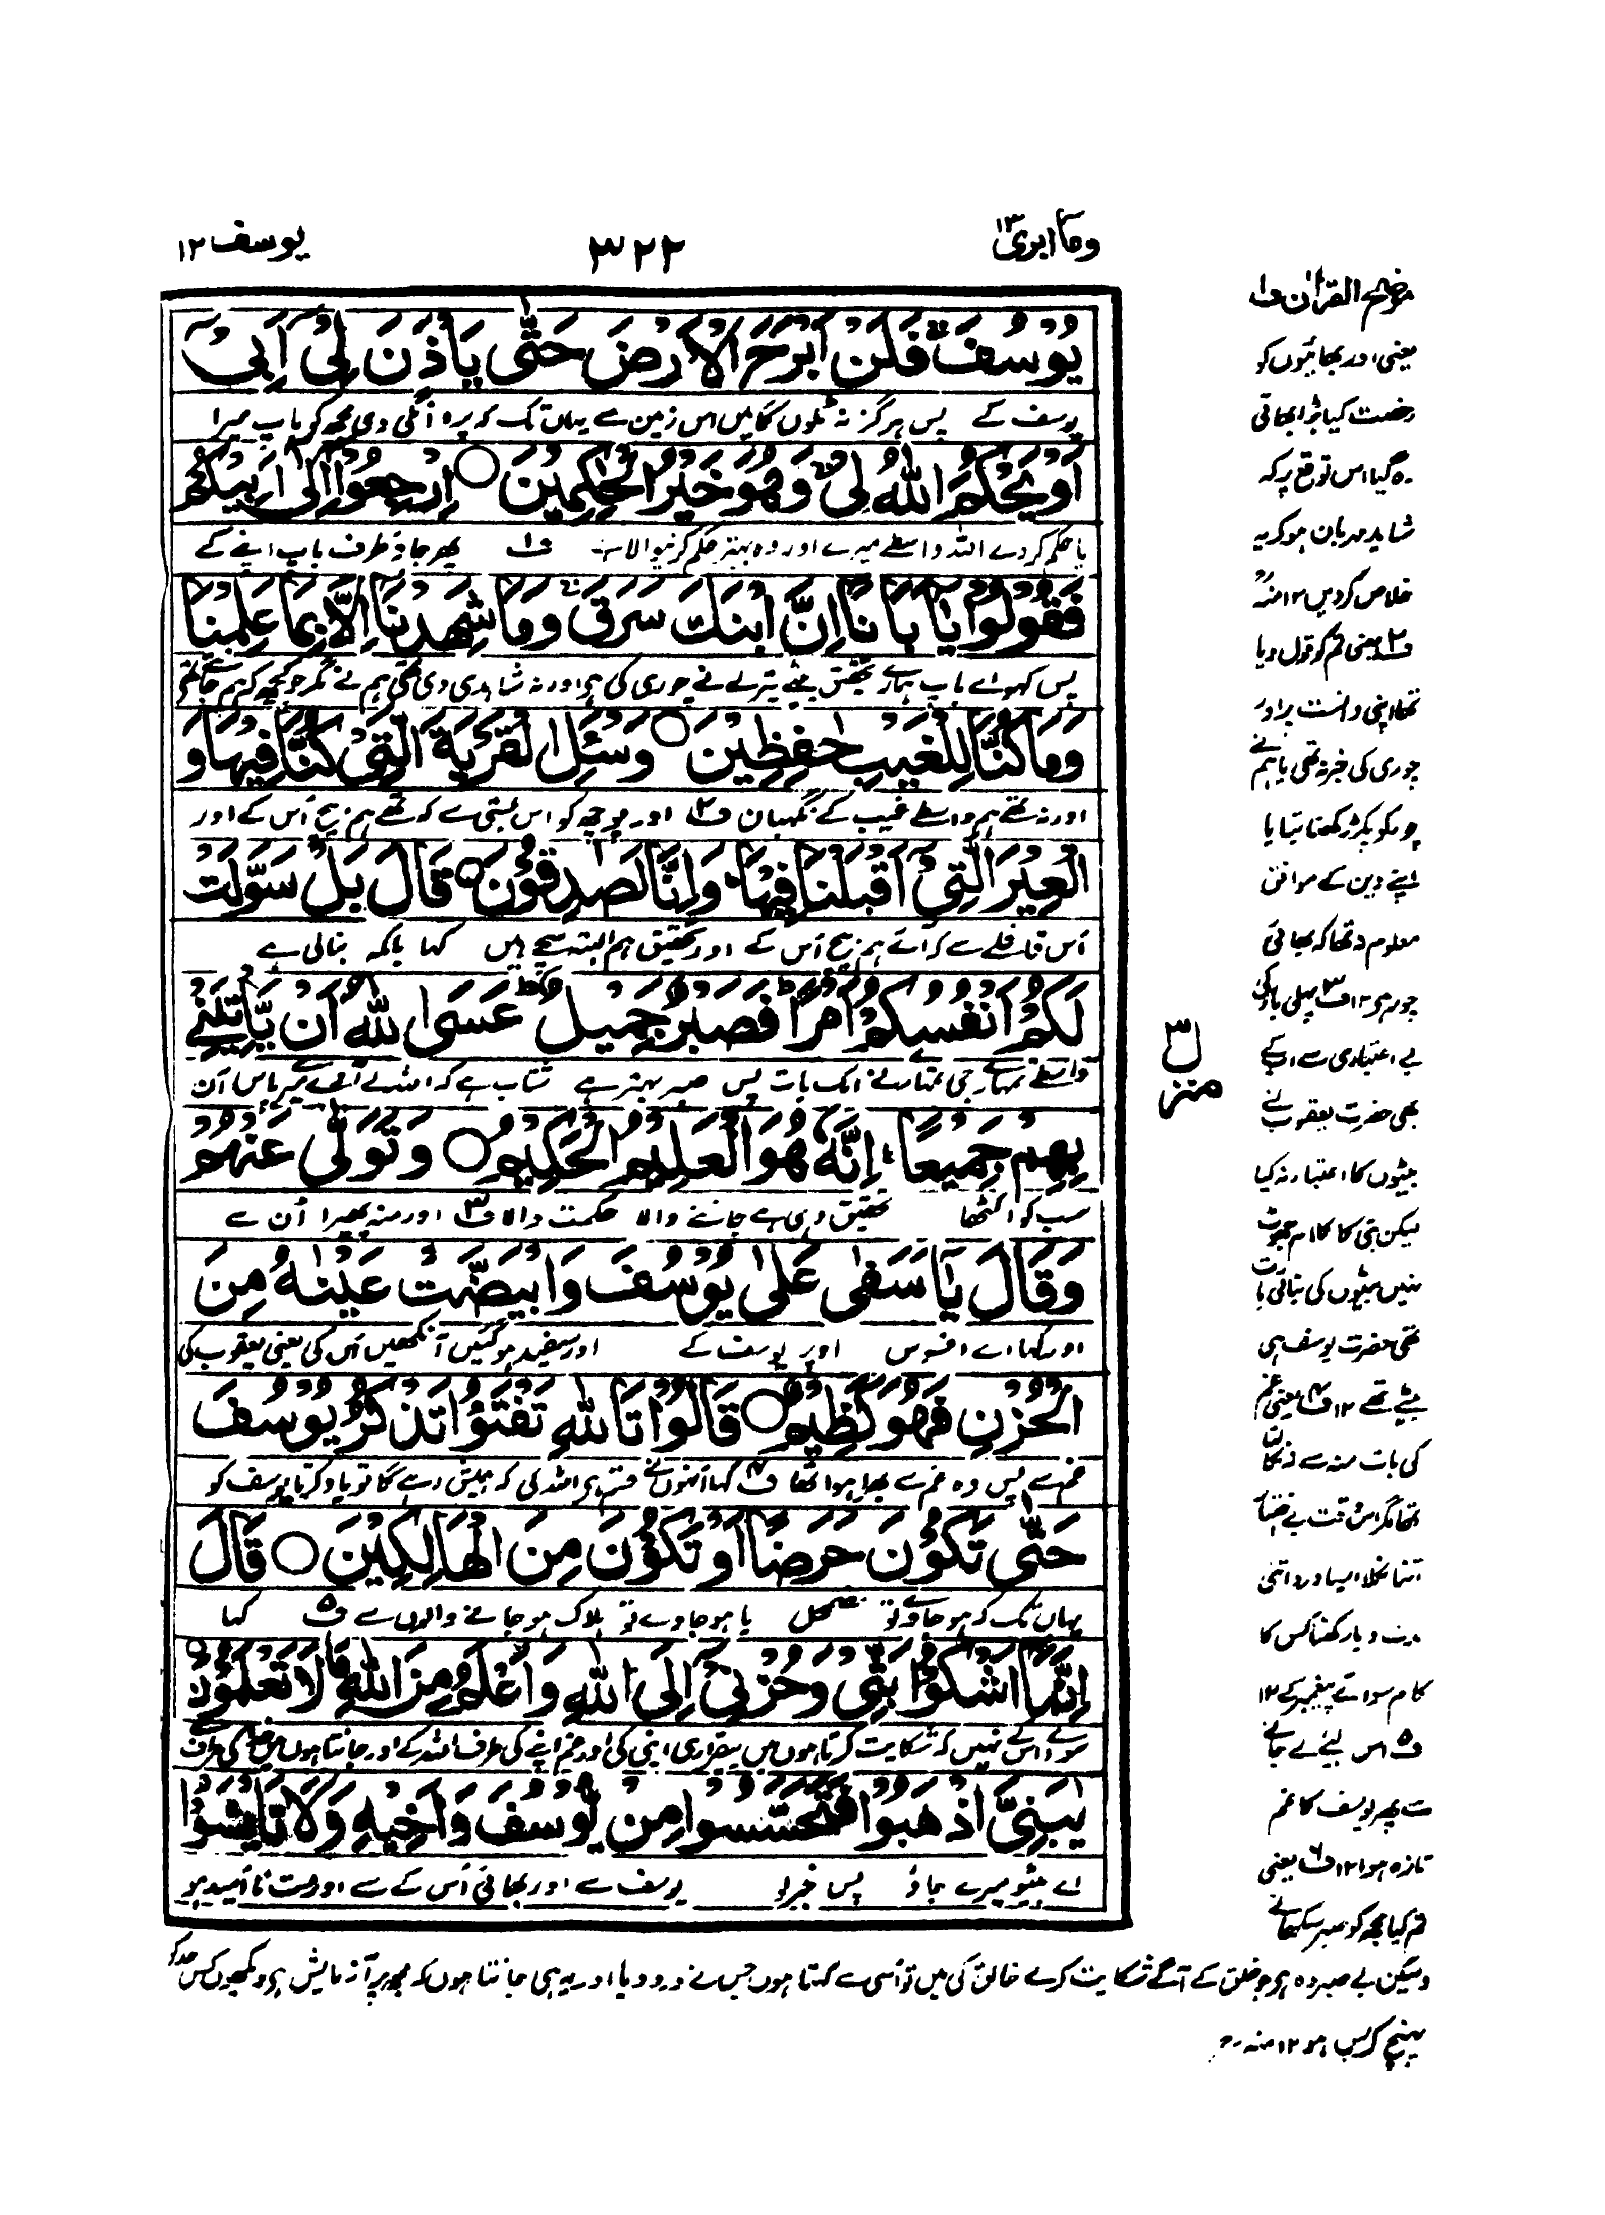 وما ابرئ ١٣
٣٢٢
يوسف ١٢
يُوْسُفَ فَلَنْ اَبْرَحَ الْاَرْضَ حَتّٰى يَاْذَنَ لِيْٓ اَبِيْٓ
یوسف کے پس ہرگز نہ ٹلوں گا میں اس زمین سے یہاں تک کہ پروانگی دی مجھ کو باپ میرا
اَوْ يَحْكُمَ اللّٰهُ لِيْ وَهُوَ خَيْرُ الْحٰكِمِيْنَ ○ اِرْجِعُوْٓا اِلٰٓى اَبِيْكُمْ
یا حکم کر دے اللہ واسطے میرے اور وہ بہتر حکم کرنیوالا ہے ف١ پھر جاؤ طرف باپ اپنے کے
فَقُوْلُوْا يٰٓاَبَانَآ اِنَّ ابْنَكَ سَرَقَ وَمَا شَهِدْنَآ اِلَّا بِمَا عَلِمْنَا
پس کہو اے باپ ہمارے تحقیق بیٹے تیرے نے چوری کی ہی اور نہ شاہدی دی تھی ہم نے مگر جو کچھ کہ ہم جانتے تھے
وَمَا كُنَّا لِلْغَيْبِ حٰفِظِيْنَ ○ وَسْئَلِ الْقَرْيَةَ الَّتِيْ كُنَّا فِيْهَا وَ
اور نہ تھے ہم واسطے غیب کے نگہبان ف٢ اور پوچھ کو اس بستی سے کہ تھے ہم بیچ اُس کے اور
الْعِيْرَ الَّتِيْٓ اَقْبَلْنَا فِيْهَا وَاِنَّا لَصٰدِقُوْنَ ○ قَالَ بَلْ سَوَّلَتْ
اُس قافلے سے کہ آئے ہم بیچ اُس کے اور تحقیق ہم البتہ سچے ہیں کہا بلکہ بنالی ہے
لَكُمْ اَنْفُسُكُمْ اَمْرًا فَصَبْرٌ جَمِيْلٌ عَسَى اللّٰهُ اَنْ يَّاْتِيَنِيْ
واسطے تمہارے جی تمہارے نے ایک بات پس صبر بہتر ہے شتاب ہے کہ اللہ لے آئے میرے پاس اُن
بِهِمْ جَمِيْعًا اِنَّهٗ هُوَ الْعَلِيْمُ الْحَكِيْمُ ○ وَتَوَلّٰى عَنْهُمْ
سب کو اکٹھا تحقیق وہی ہے جاننے والا حکمت والا ف٣ اور منہ پھیرا اُن سے
وَقَالَ يٰٓاَسَفٰى عَلٰى يُوْسُفَ وَابْيَضَّتْ عَيْنٰهُ مِنَ
اور کہا اے افسوس اوپر یوسف کے اور سفید ہوگئیں آنکھیں اُس کی یعنی یعقوب کی
الْحُزْنِ فَهُوَ كَظِيْمٌ ○ قَالُوْا تَاللّٰهِ تَفْتَؤُا تَذْكُرُ يُوْسُفَ
غم سے پس وہ غم سے بھرا ہوا تھا ف٤ کہا اُنہوں نے قسم ہی اللہ کی کہ ہمیشہ رہے گا تو یاد کرتا یوسف کو
حَتّٰى تَكُوْنَ حَرَضًا اَوْ تَكُوْنَ مِنَ الْهَالِكِيْنَ ○ قَالَ
یہاں تک کہ ہو جاوے تو مضمحل یا ہو جاوے تو ہلاک ہو جانے والوں سے ف٥ کہا
اِنَّمَآ اَشْكُوْا بَثِّيْ وَحُزْنِيْٓ اِلَى اللّٰهِ وَاَعْلَمُ مِنَ اللّٰهِ مَا لَا تَعْلَمُوْنَ
سوائے اس کے نہیں کہ شکایت کرتا ہوں میں بیقراری اپنی کی اور غم اپنے کی طرف اللہ کے اور جانتا ہوں میں خدا کی طرف
يٰبَنِيَّ اذْهَبُوْا فَتَحَسَّسُوْا مِنْ يُّوْسُفَ وَاَخِيْهِ وَلَا تَايْئَسُوْا
اے بیٹو میرے جاؤ پس خبر لو یوسف سے اور بھائی اُس کے سے اور مت نا اُمید ہو
موضح القرآن ف١
یعنی اور بھائیوں کو
رخصت کیا بڑا بھائی
رہ گیا اس توقع پر کہ
شاید مہربان ہو کر یہ
خلاص کردیں ١٢ منہ
ف٢ یعنی تم کو قول دیا
تھا اپنی دانست پر اور
چوری کی خبر نہ تھی یا ہم نے
چور کو پکڑ رکھنا بتایا
اپنے دین کے موافق
معلوم نہ تھا کہ بھائی
چور ہی ١٢ ف٣ پہلی بار کی
بے اعتباری سے اب کے
بھی حضرت یعقوب نے
بیٹوں کا اعتبار نہ کیا
لیکن نبی کا کلام جھوٹ
نہیں بیٹوں کی بنائی بات
تھی حضرت یوسف ہی
بیٹے تھے ١٢ ف٤ یعنی غم
کی بات منہ سے نہ نکالتا
تھا مگر اس وقت بے اختیار
اتنا نکلا ایسا درد اتنی
مدت دبا رکھنا کس کا
کام سوائے پیغمبر کے ١٢
ف٥ اس لئے لے جانے
سے پھر یوسف کا غم
تازہ ہوا ١٢ ف٦ یعنی
تم کیا مجھ کو صبر سکھاتے
ولیکن بے صبر وہ ہی جو خلق کے آگے شکایت کرے خالق کی میں تو اُسی سے کہتا ہوں جس نے درد دیا اور یہ بھی جانتا ہوں کہ مجھ پر آزمایش ہی دیکھوں کس حد کو
پہنچ کر بس ہو ١٢ منہ
منزل ٣